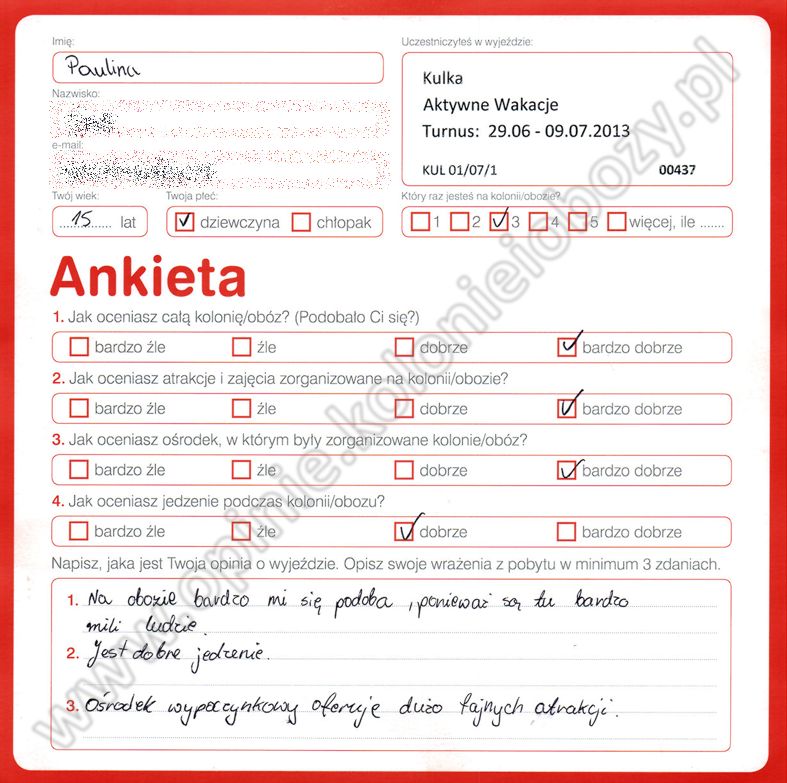 Imię:
Paulina
Uczestniczyłeś w wyjeździe:
Kulka
Aktywne Wakacje
Turnus: 29.06 - 09.07.2013
KUL 01/07/1 00437
Nazwisko:
e-mail:
Twój wiek:
15 lat
Twoja płeć:
dziewczyna chłopak
Który raz jesteś na kolonii/obozie?
1 2 3 4 5 więcej, ile .......
Ankieta
1. Jak oceniasz całą kolonię/obóz? (Podobało Ci się?)
bardzo źle źle dobrze bardzo dobrze
2. Jak oceniasz atrakcje i zajęcia zorganizowane na kolonii/obozie?
bardzo źle źle dobrze bardzo dobrze
3. Jak oceniasz ośrodek, w którym były zorganizowane kolonie/obóz?
bardzo źle źle dobrze bardzo dobrze
4. Jak oceniasz jedzenie podczas kolonii/obozu?
bardzo źle źle dobrze bardzo dobrze
Napisz, jaka jest Twoja opinia o wyjeździe. Opisz swoje wrażenia z pobytu w minimum 3 zdaniach.
1. Na obozie bardzo mi się podoba, ponieważ są tu bardzo
mili ludzie.
2. Jest dobre jedzenie.
3. Ośrodek wypoczynkowy oferuje dużo fajnych atrakcji.
www.opinie.kolonieiobozy.pl